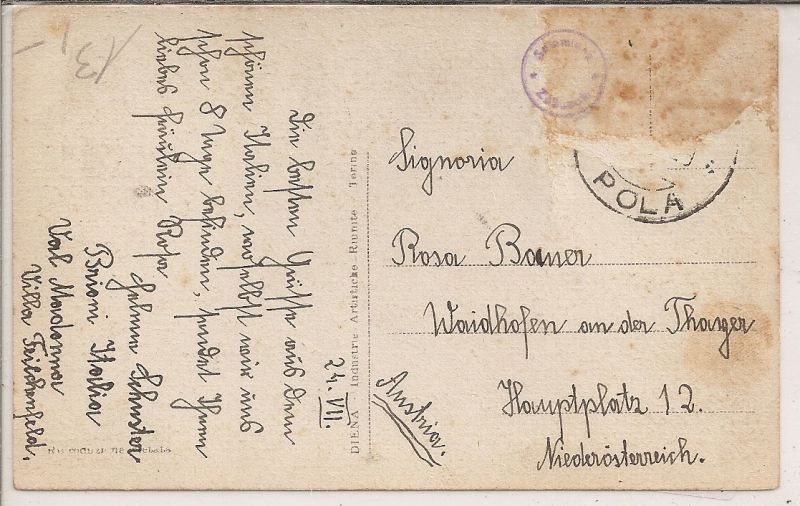 13,-
24. VII.
Die besten Grüsse aus dem
schönen Italien, woselbst wir uns
schon 8 Tage befinden, sendet Ihnen
liebes Fräulein Rosa
Schuster
Brioni Italia
Val Madonna
Villa Feilchenfeld.
DIENA Industrie Artistiche Riunite Torino
POLA
Signoria
Rosa Bauer
Waidhofen an der Thayer
Hauptplatz 12.
Niederösterreich.
Austria.